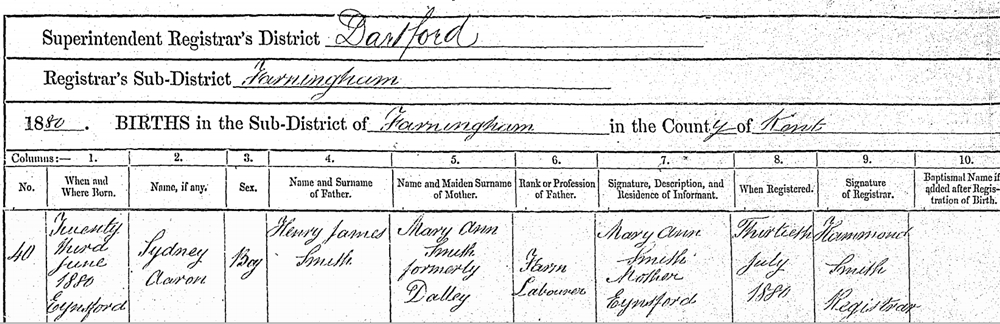 Superintendent Registrar's District Dartford
Registrar's Sub-District Farningham
1880. BIRTHS in the Sub-District of Farningham in the County of Kent
Columns:— 1. 2. 3. 4. 5. 6. 7. 8. 9. 10.
No. When and Where Born. Name, if any. Sex. Name and Surname of Father. Name and Maiden Surname of Mother. Rank or Profession of Father. Signature, Description, and Residence of Informant. When Registered. Signature of Registrar. Baptismal Name if added after Registration of Birth.
40
Twenty
third
June
1880
Eynsford
Sydney
Aaron
Boy
Henry James
Smith
Mary Ann
Smith
formerly
Dalley
Farm
Labourer
Mary Ann
Smith
Mother
Eynsford
Thirtieth
July
1880
Hammond
Smith
Registrar